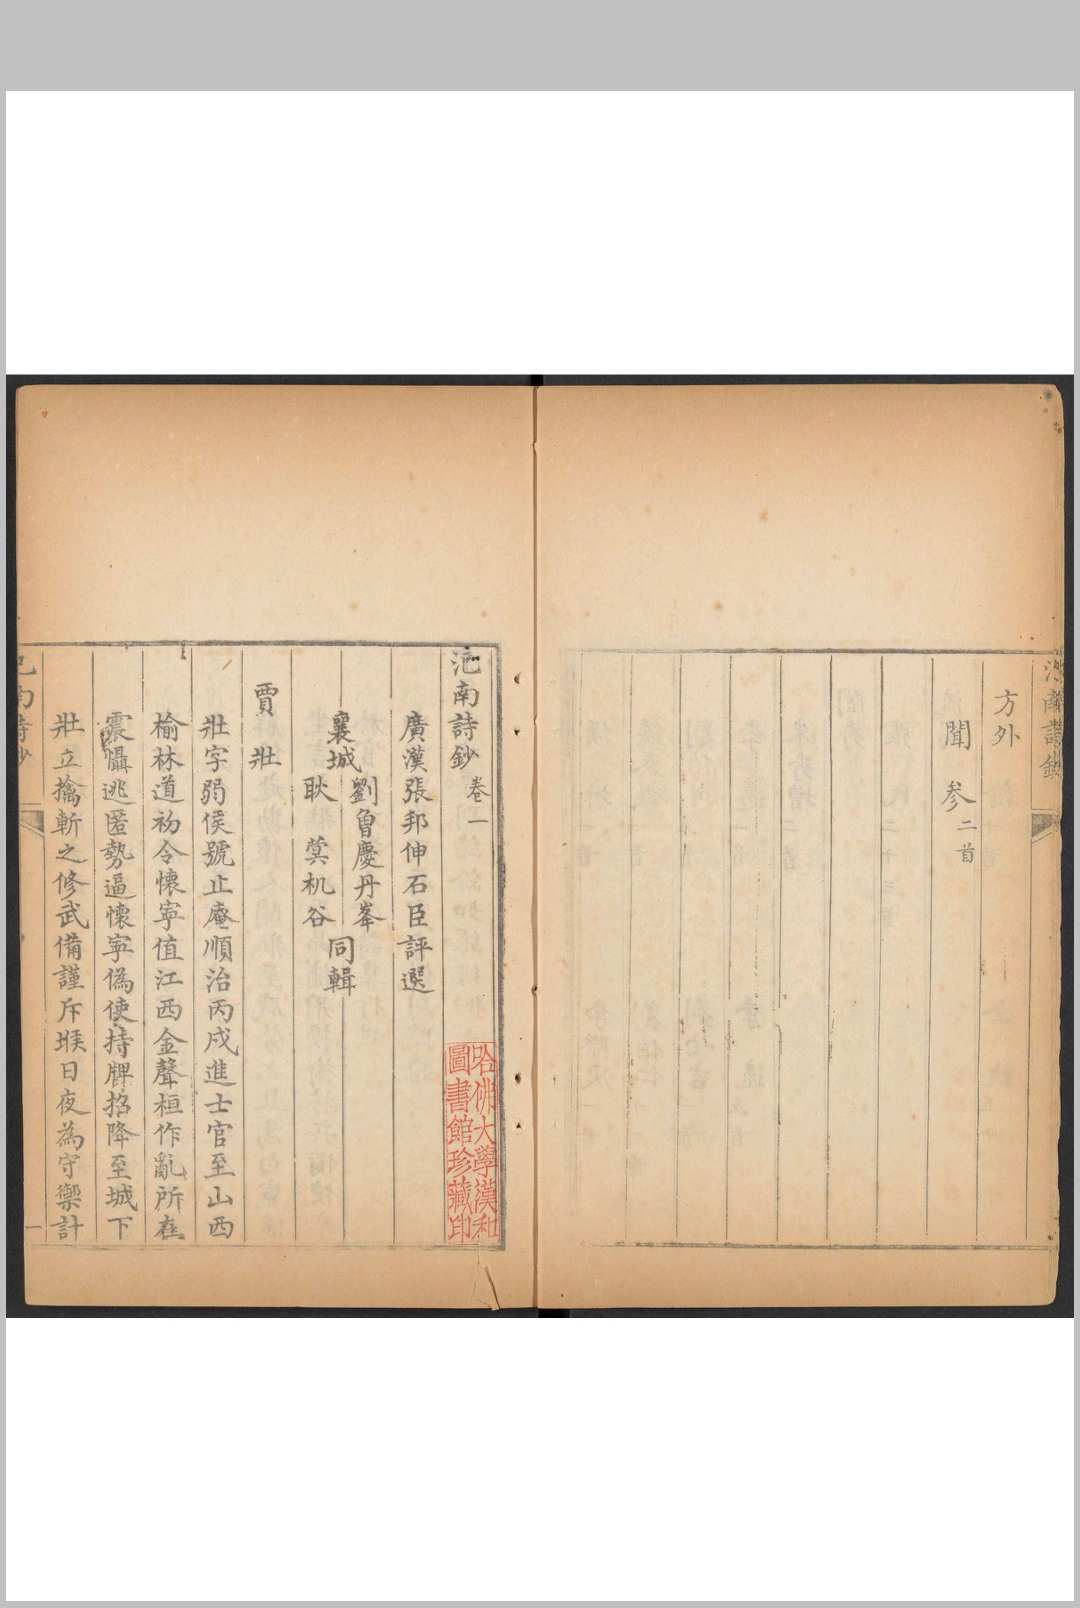 方外
聞參二首
氾南詩鈔卷一
廣漢張邦伸石臣評選
襄城
劉魯慶丹峯
耿蓂机谷
同輯
賈壯
壯字弱侯號止庵順治丙戌進士官至山西
榆林道初令懷寧值江西金聲桓作亂所在
震懾逃匿勢逼懷寧偽使持牌招降至城下
壯立擒斬之修武備謹斥堠日夜為守禦計
一
哈佛大學漢和
圖書館珍藏印